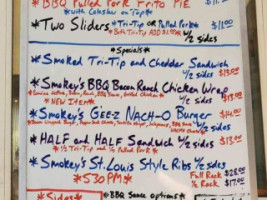 *BBQ Pulled Pork Frito Pie $11.00
*with Coleslaw on Top*
*Two Sliders* *Tri-Tip or Pulled Pork* $11.00
*Both Tri-Tip ADD $1.00* w/2 sides
*Specials*
*Smoked Tri-Tip and Cheddar Sandwich
w/2 sides $13.00
*Smokey's BBQ Bacon Ranch Chicken Wrap
w/2 sides $13.00
*NEW ITEM*
*Smokey's GEE-Z NACH-O Burger $14.00
w/2 sides
*HALF and HALF Sandwich w/2 sides $13.00
*½ Tri-Tip and ½ Pulled Pork*
*Smokey's St. Louis Style Ribs w/2 sides
*5:30PM* Full Rack $28.00
½ Rack $17.00
*Sides* *BBQ Sauce options*